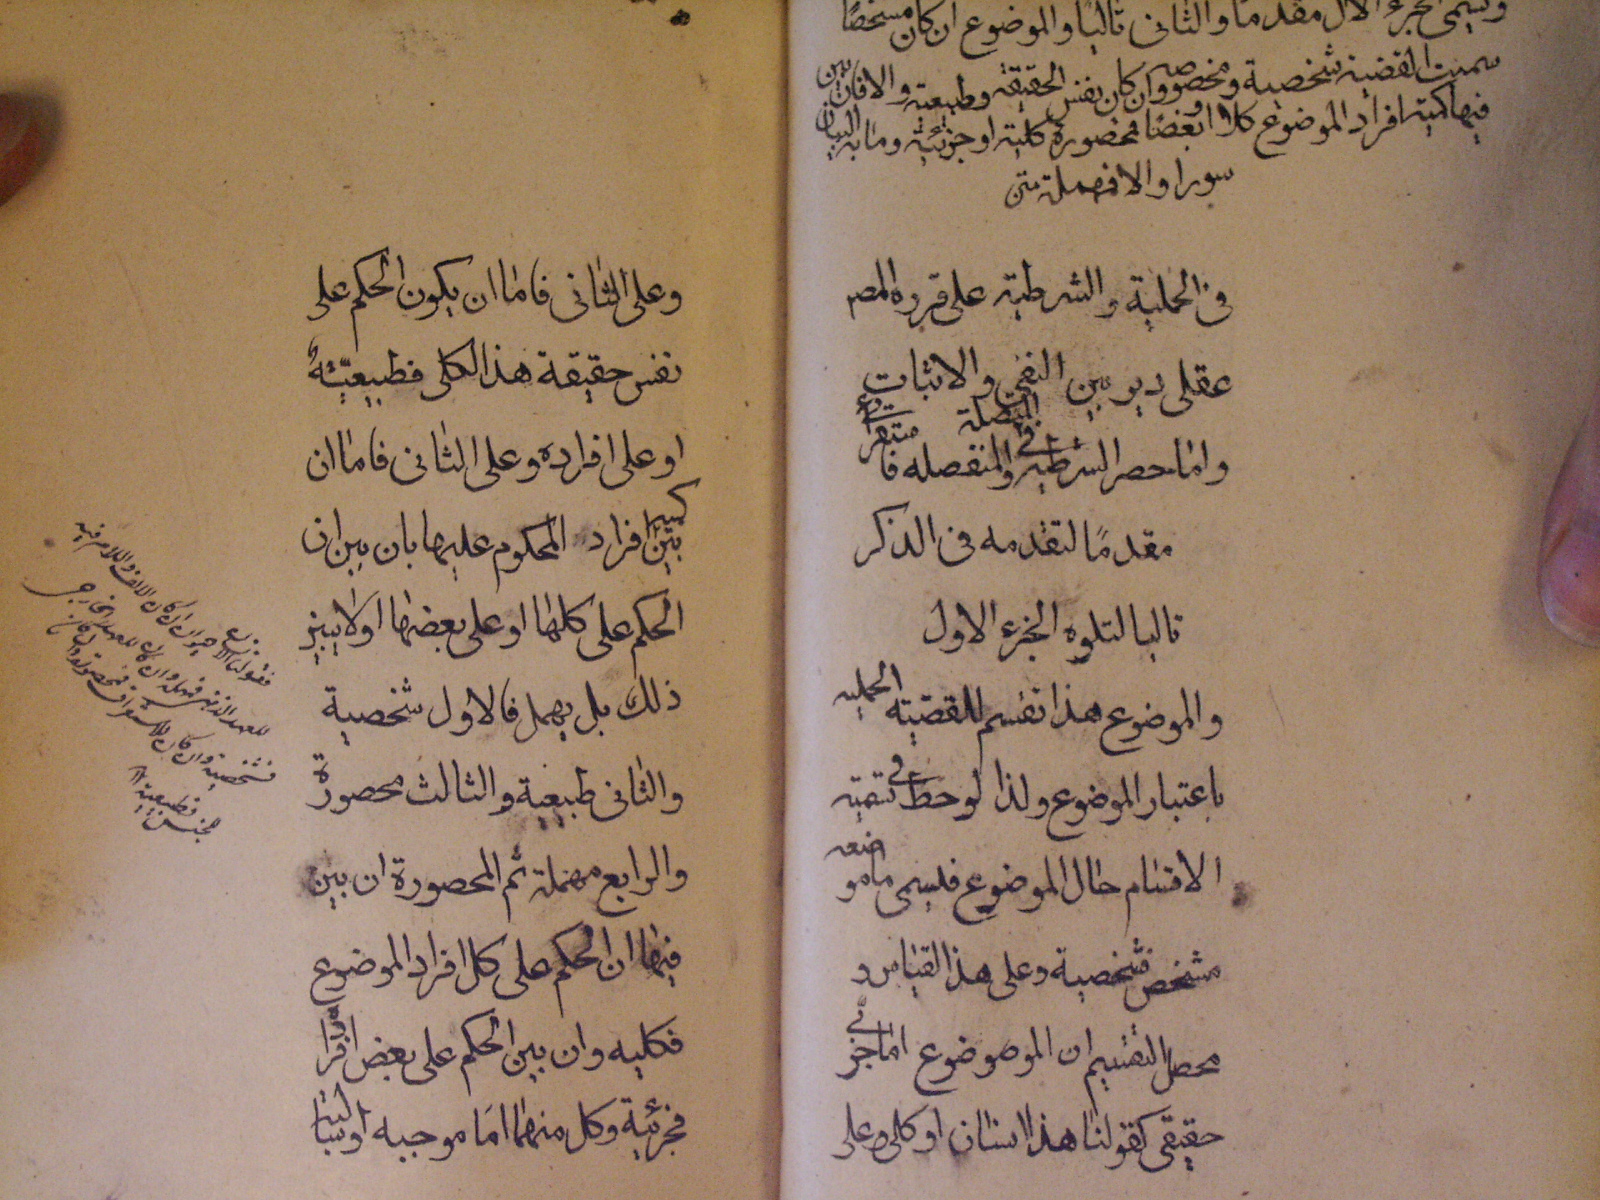 ويسمى الجزء الاول مقدما والثانى تاليا والموضوع ان كان مشخصا
سميت القضية شخصية ومخصوصه وان كان نفس الحقيقة وطبيعية والا فان بين
فيها كمية افراد الموضوع كلا او بعضا محصورة كلية او جزئية وما به البيان
سورا والا فمهملة متن
فى الحملية والشرطية على قرره المصـ
عقلى دير بين النفى والاثبات
واما حصر الشرطية فى المتصلة والمنفصله فاستقرائى
مقدمًا لتقدمه فى الذكر
تاليا لتلوه الجزء الاول
والموضوع هذا تقسيم للقضية الحمليه
باعتبار الموضوع ولذا لوحظ فى تسمية
الاقسام حال الموضوع فيسمى ما موضعه
مشخص شخصية وعلى هذا القياس و
محصل التقسيم ان الموضوع اما جزئى
حقيقى كقولنا هذا انسان او كلى وعلى
وعلى الثانى فاما ان يكون الحكم على
نفس حقيقة هذا الكلى فطبيعيته
او على افراده وعلى الثانى فاما ان
يبين كمية افراد المحكوم عليها بان بين ان
الحكم على كلها او على بعضها او لا يبين
ذلك بل يهمل فالاول شخصية
والثانى طبيعية والثالث محصورة
والرابع مهملة ثم المحصورة ان بين
فيها ان الحكم على كل افراد الموضوع
فكليه وان بين الحكم على بعض افراده
فجزئية وكل منهما اما موجبه او سالبة
فقولنا الانسان حيوان ان كان الالف واللام فيه
للعهد الذهنى فمهملة وان كان للعهد الخارجى
فشخصية وان كان للاستغراق فمحصورة وان كان
للجنس فطبيعية